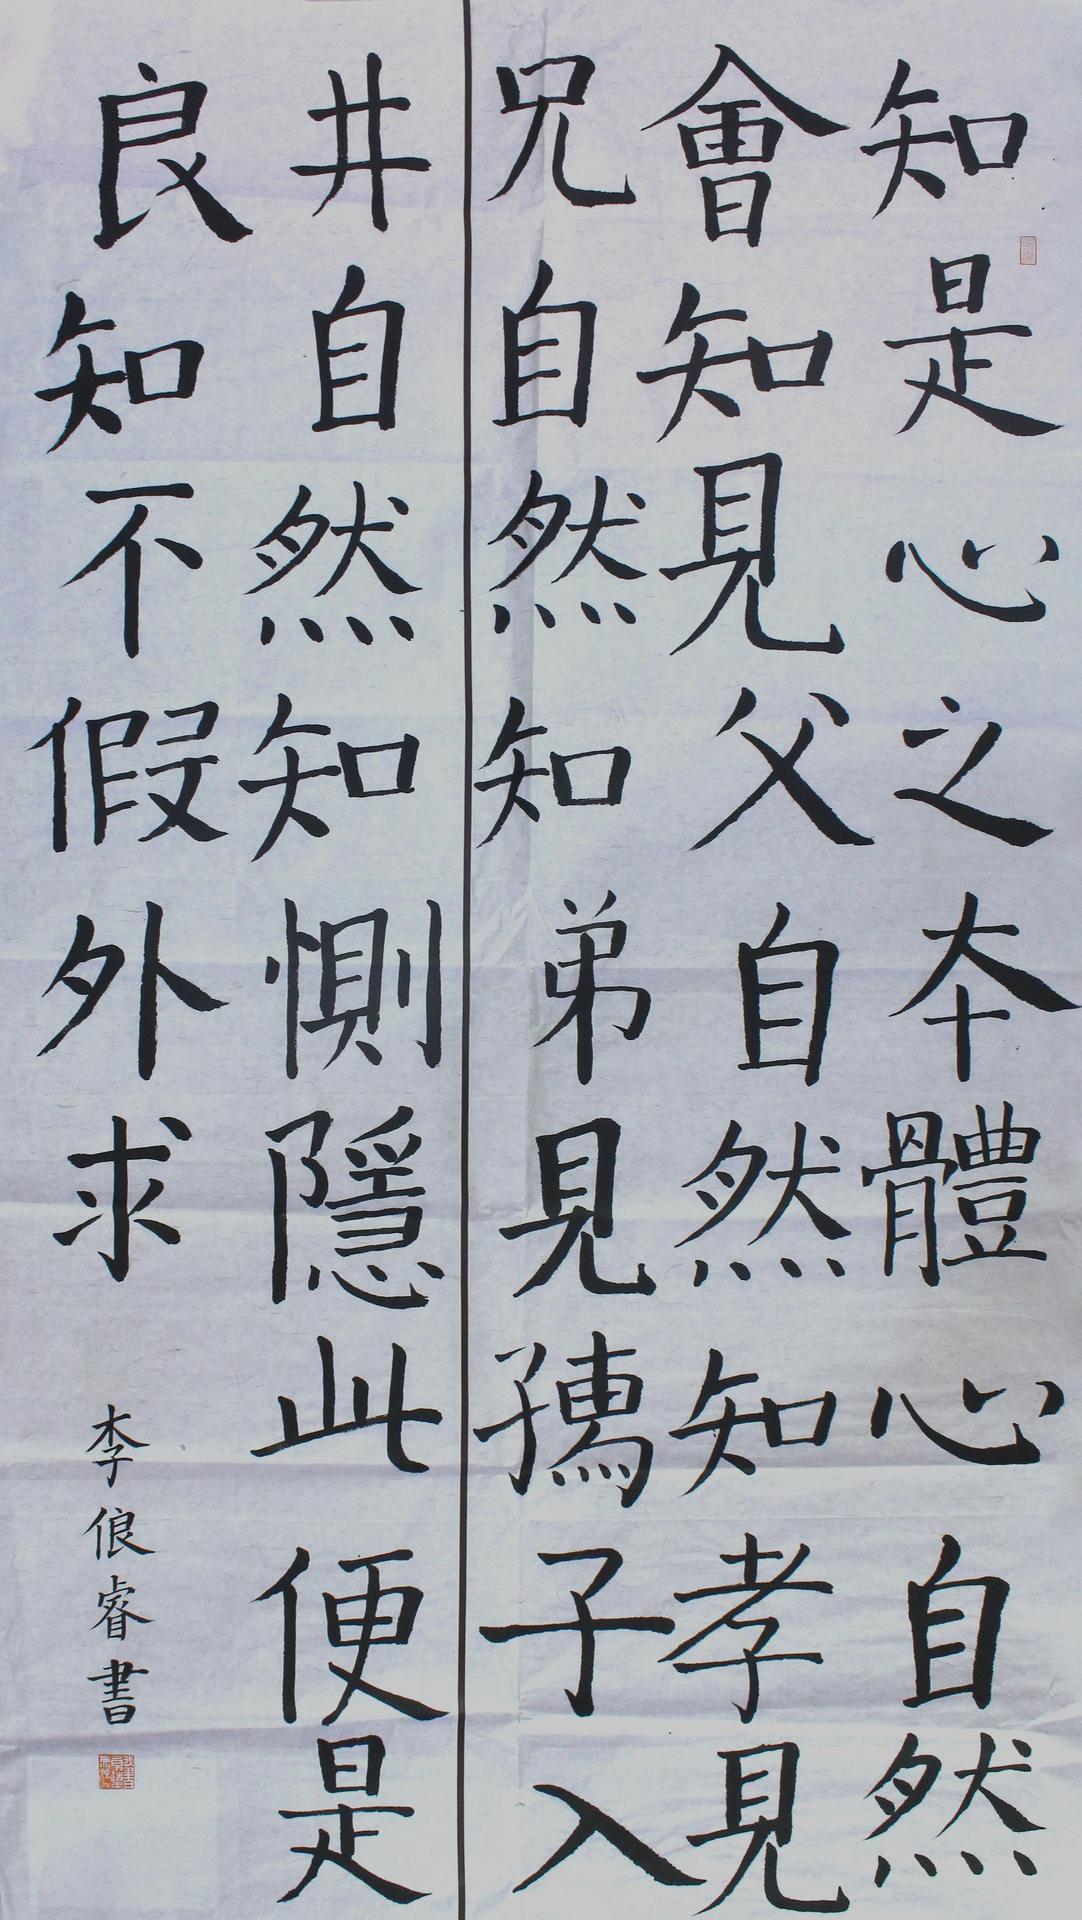 知是心之本體心自然
會知見父自然知孝見
兄自然知弟見孺子入
井自然知惻隱此便是
良知不假外求
李俍睿書